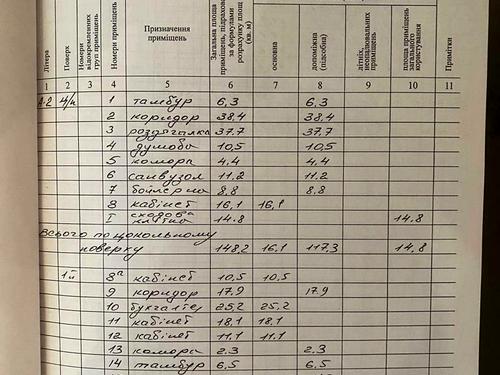 Літера
Поверх
Номери відокремлених груп приміщень
Номери приміщень
Призначення приміщень
Загальна площа приміщень, підрахов за формулами розрахунку площ (кв. м)
основна
допоміжна (підсобна)
літніх, неопалювальних приміщень
площа приміщень загального користування
Примітки
1 2 3 4 5 6 7 8 9 10 11
А-2 ц/п 1 тамбур 6,3 6,3
2 коридор 38,4 38,4
3 роздягалка 37.7 37.7
4 душова 10,5 10,5
5 комора 4,4 4,4
6 санвузол 11.2 11.2
7 бойлерна 8,8 8.8
8 кабінет 16,1 16,1
I сходова клітка 14.8 14.8
Всього по цокольному
поверху 148,2 16,1 117,3 14,8
1й 8а кабінет 10,5 10,5
9 коридор 17.9 17.9
10 бухгалтер 25,2 25,2
11 кабінет 18,1 18,1
12 кабінет 11,1 11,1
13 комора 2.3 2.3
14 тамбур 6,5 6,5